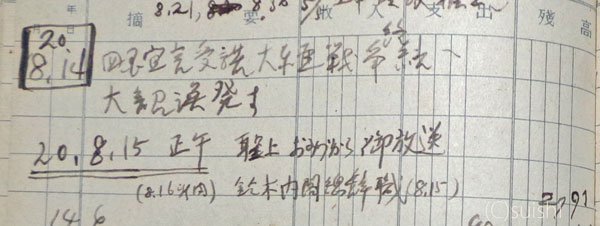 年 日 摘 要 収入 支出 残高
8.21,
20.
8.14 四国宣言受諾 大東亜戦争終結ヘ
大詔渙発す
20, 8, 15 正午 聖上 おみづから御放送
(8.16 内) 鈴木内閣総辞職 (8.15)
14.6
©suishi